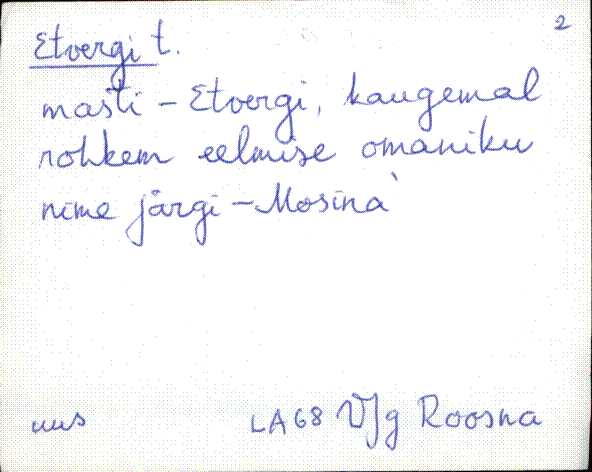 2
Etvergi t.
masti - Etvergi, kaugemal
rohkem eelmise omaniku
nime järgi - Mosina`
uus
LA68 VJg Roosna